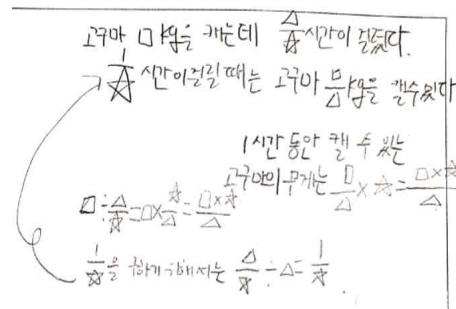 고구마 □kg을 캐는데 △/☆시간이 걸렸다.
1/☆ 시간이 걸릴 때는 고구마 □/△kg을 캘수 있다
1시간 동안 캘 수 있는
고구마의 무게는 □/△×☆=□×☆/△
□÷△/☆=□×☆/△=□×☆/△
1/☆을 구하기 위해서는 △/☆÷△=1/☆.